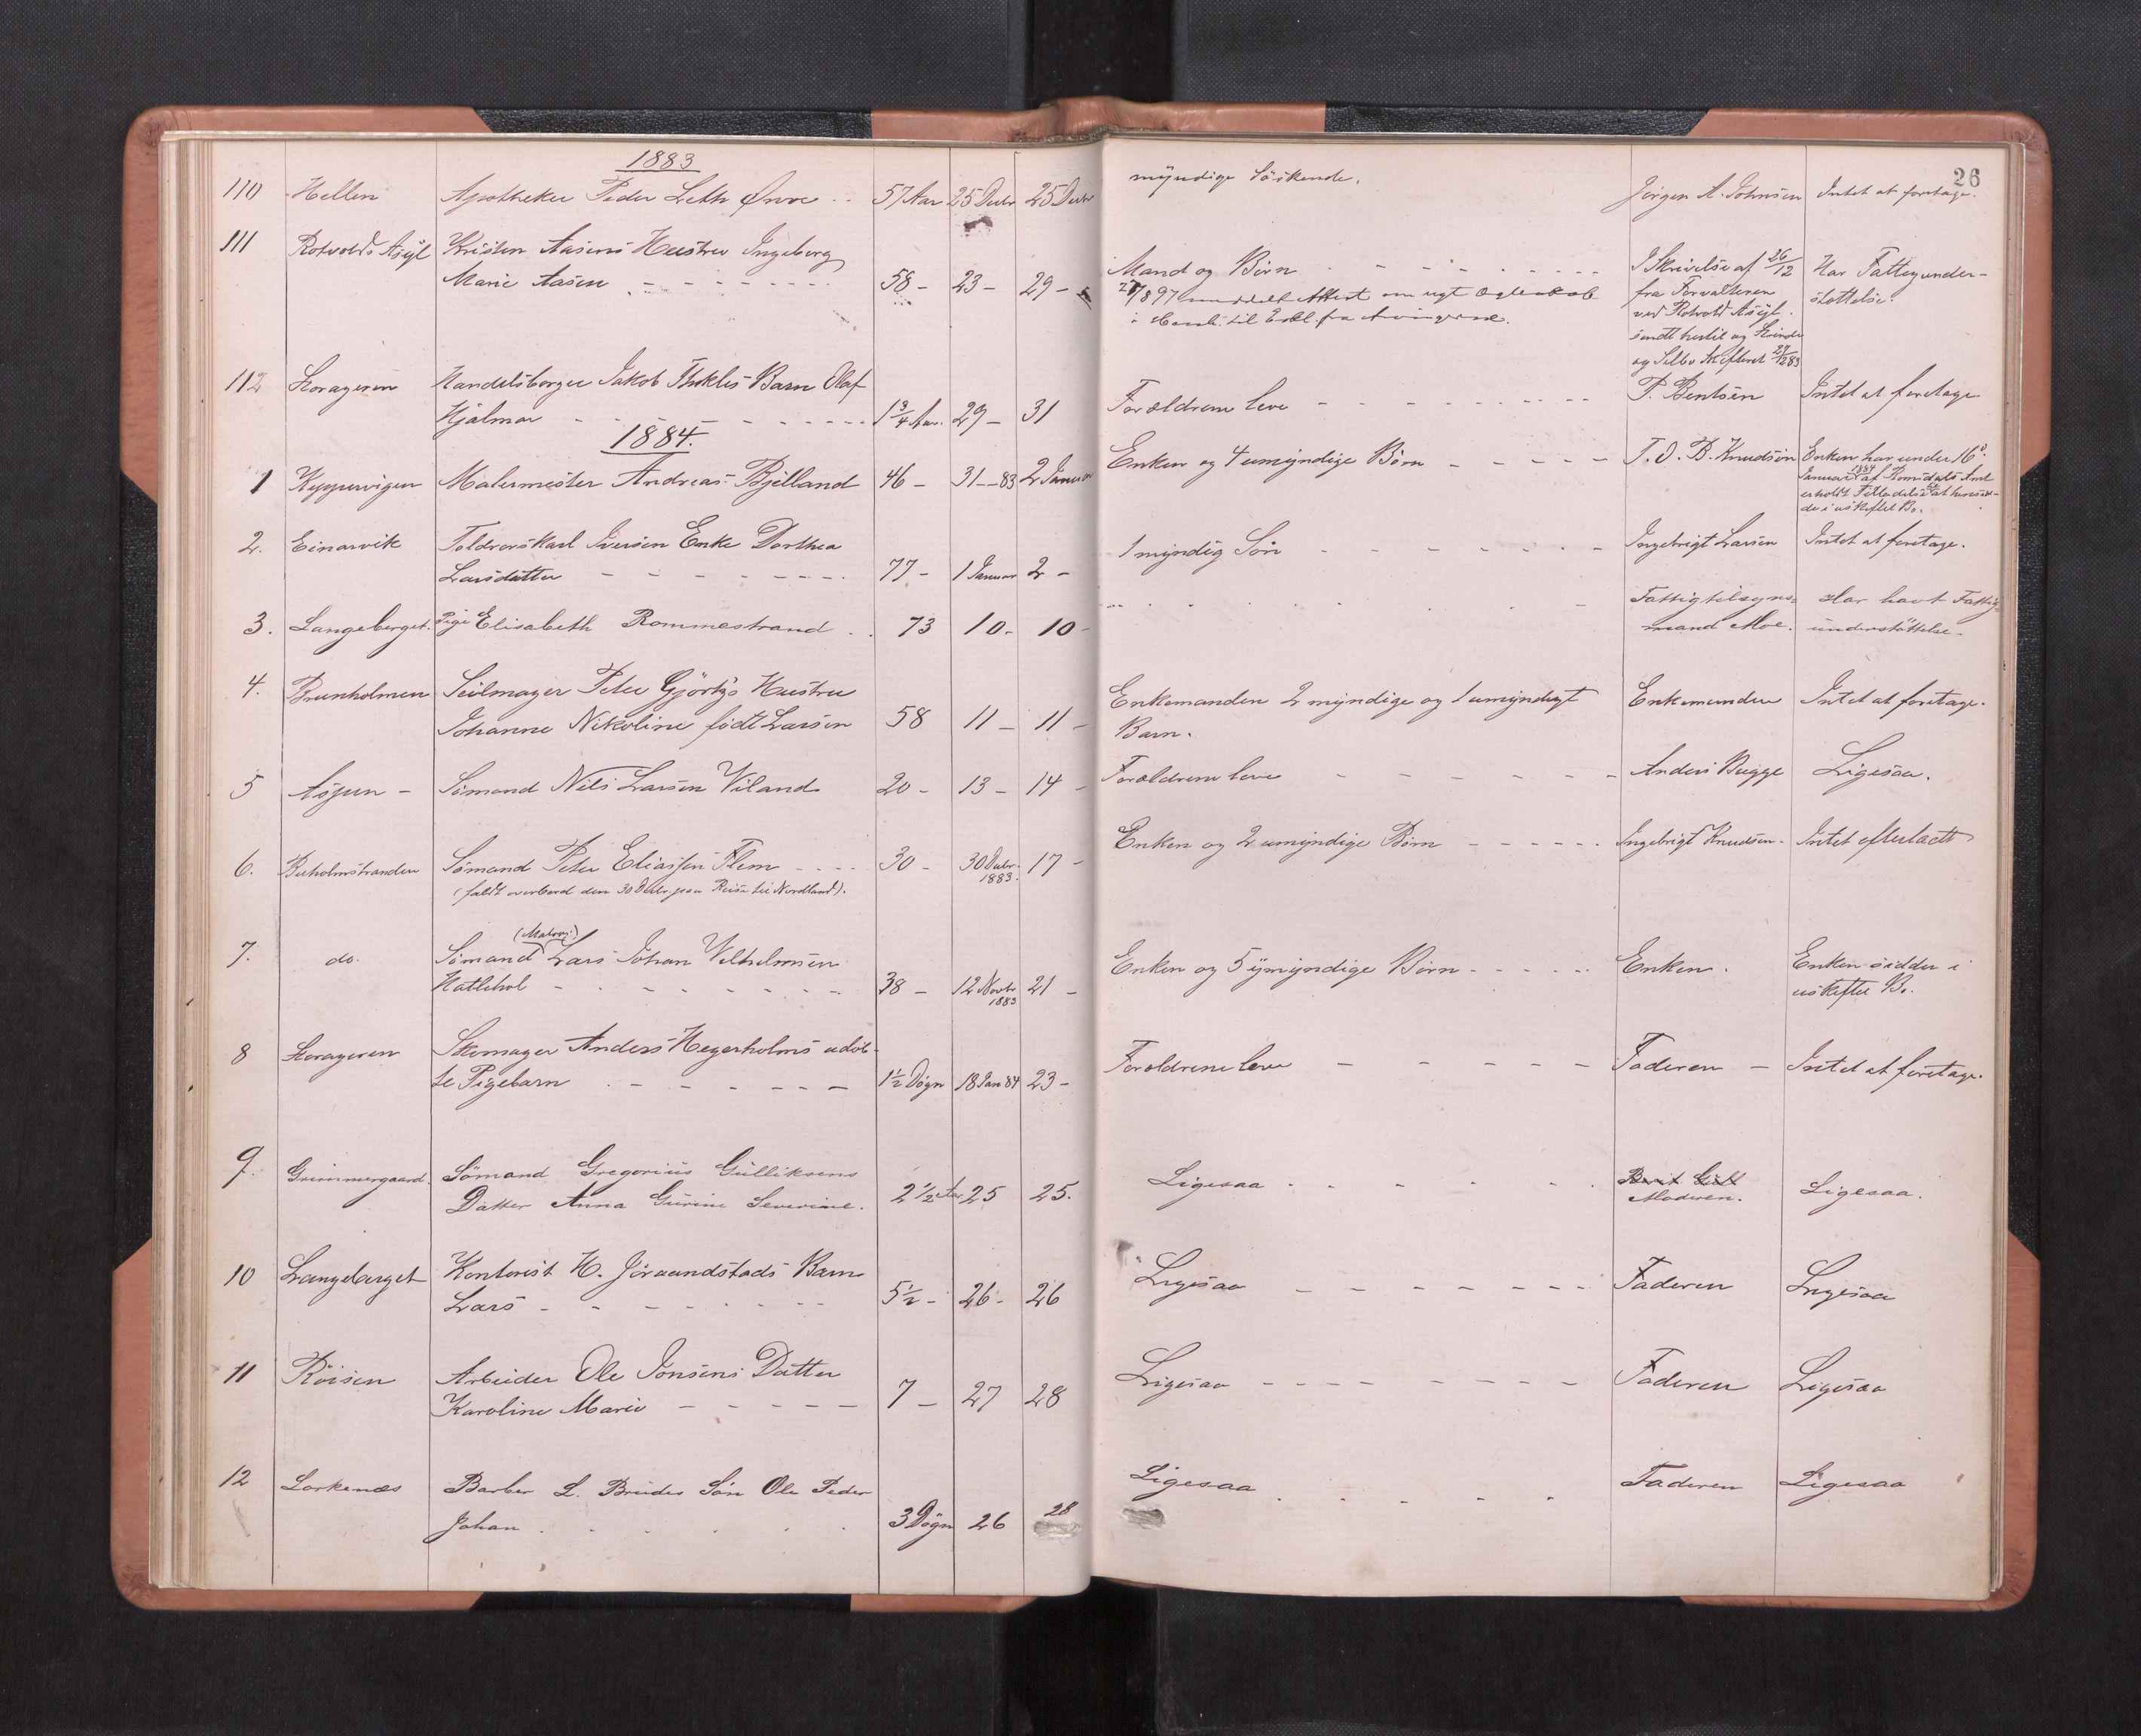 26
1883
110 Hellen Apotheker Peder Leth Ønvre .. 57 Aar 25 Decbr 25 Decbr myndige Söskende. Jørgen A. Johnsen Intet at foretage.
111 Rotvolds Asyl Kristen Aasens Hustru Ingeborg
Marie Aasen - - - 58 - 23 - 29 - Mand og Børn - - - I Skrivelse af 26/12 Har Fattigunder-
27/8 97 meddelt Attest om ugt fra Forvalteren støttelse.
til fra ved Rotvold Asyl
sendt hertil og
og Selbo Skifteret 29/12 83
112 Storageren Handelsborger Jakob Barn Olaf
Hjalmar - - - 1 3/4 Aar. 29 - 31 Forældrene leve - - - P. Bentsen Intet at foretage
1884.
1 Kyppervigen Malermester Andreas Bjelland 46 - 31 - - 83 2 Januar Enken og 4 umyndige Børn - - - T. O. B. Knudsen Enken har under 16de
Januar 1884 af Romsdals Amt
erholdt Tilladelse til at hensid-
de i uskiftet Bo.
2. Einarvik Toldrorskarl Iversen Enke Dorthea
Larsdatter - - - 77 - 1 Januar 2 - 1 myndig Søn - - - Ingebrigt Larsen Intet at foretage.
3. Langeberget. Pige Elisabeth Rommestrand . . 73 10 - 10 - Fattigtilsyns- Har havt Fattig-
mand Moe. understöttelse.
4. Brunholmen Seilmager Peter Gjørtz's Hustru
Johanne Nikoline født Larsen 58 11 - 11 - Enkemanden 2 myndige og 1 umyndigt Enkemanden Intet at foretage.
Barn.
5 Aspøen - Sømand Nils Larsen Viland 20 - 13 - 14 - Forældrene leve - - - Anders Bugge Ligesaa.
6. Buholmstranden Sømand Peter Eliassen Flem - - - 30 - 30 Decbr. 1883. 17 - Enken og 2 umyndige Børn - - - Ingebrigt Knudsen. Intet efterladt
(faldt overbord den 30 Decbr. paa Reise til Nordland).
7. do. Sømand (Matros) Lars Johan Vilhelmsen
Hatlehol - - - 38 - 12 Novbr 1883 21 - Enken og 5 ymyndige Børn - - - Enken. Enken sidder i
uskiftet Bo.
8 Storageren Skomager Anders Hegerholms udøb-
te Pigebarn - - - 1 1/2 Døgn 18 Jan 84 23 - Forældrene leve - - - Faderen - Intet at foretage.
9. Grimmergaard. Sömand Gregorius Gulliksens
Datter Anna Gurine Severine. 2 1/2 Aar 25 25. Ligesaa - - - Moderen. Ligesaa.
10 Langeberget Kontorist H. Jøraandstads Barn
Lars - - - 5 1/2 - 26 - 26 Ligesaa - - - Faderen Ligesaa
11 Röisen Arbeider Ole Jonsens Datter
Karoline Marie - - - 7 - 27 28 Ligesaa - - - Faderen Ligesaa
12 Lorkenæs Barber L. Brudes Søn Ole Peder
Johan . . . 3 Døgn 26 28 Ligesaa . . . Faderen Ligesaa